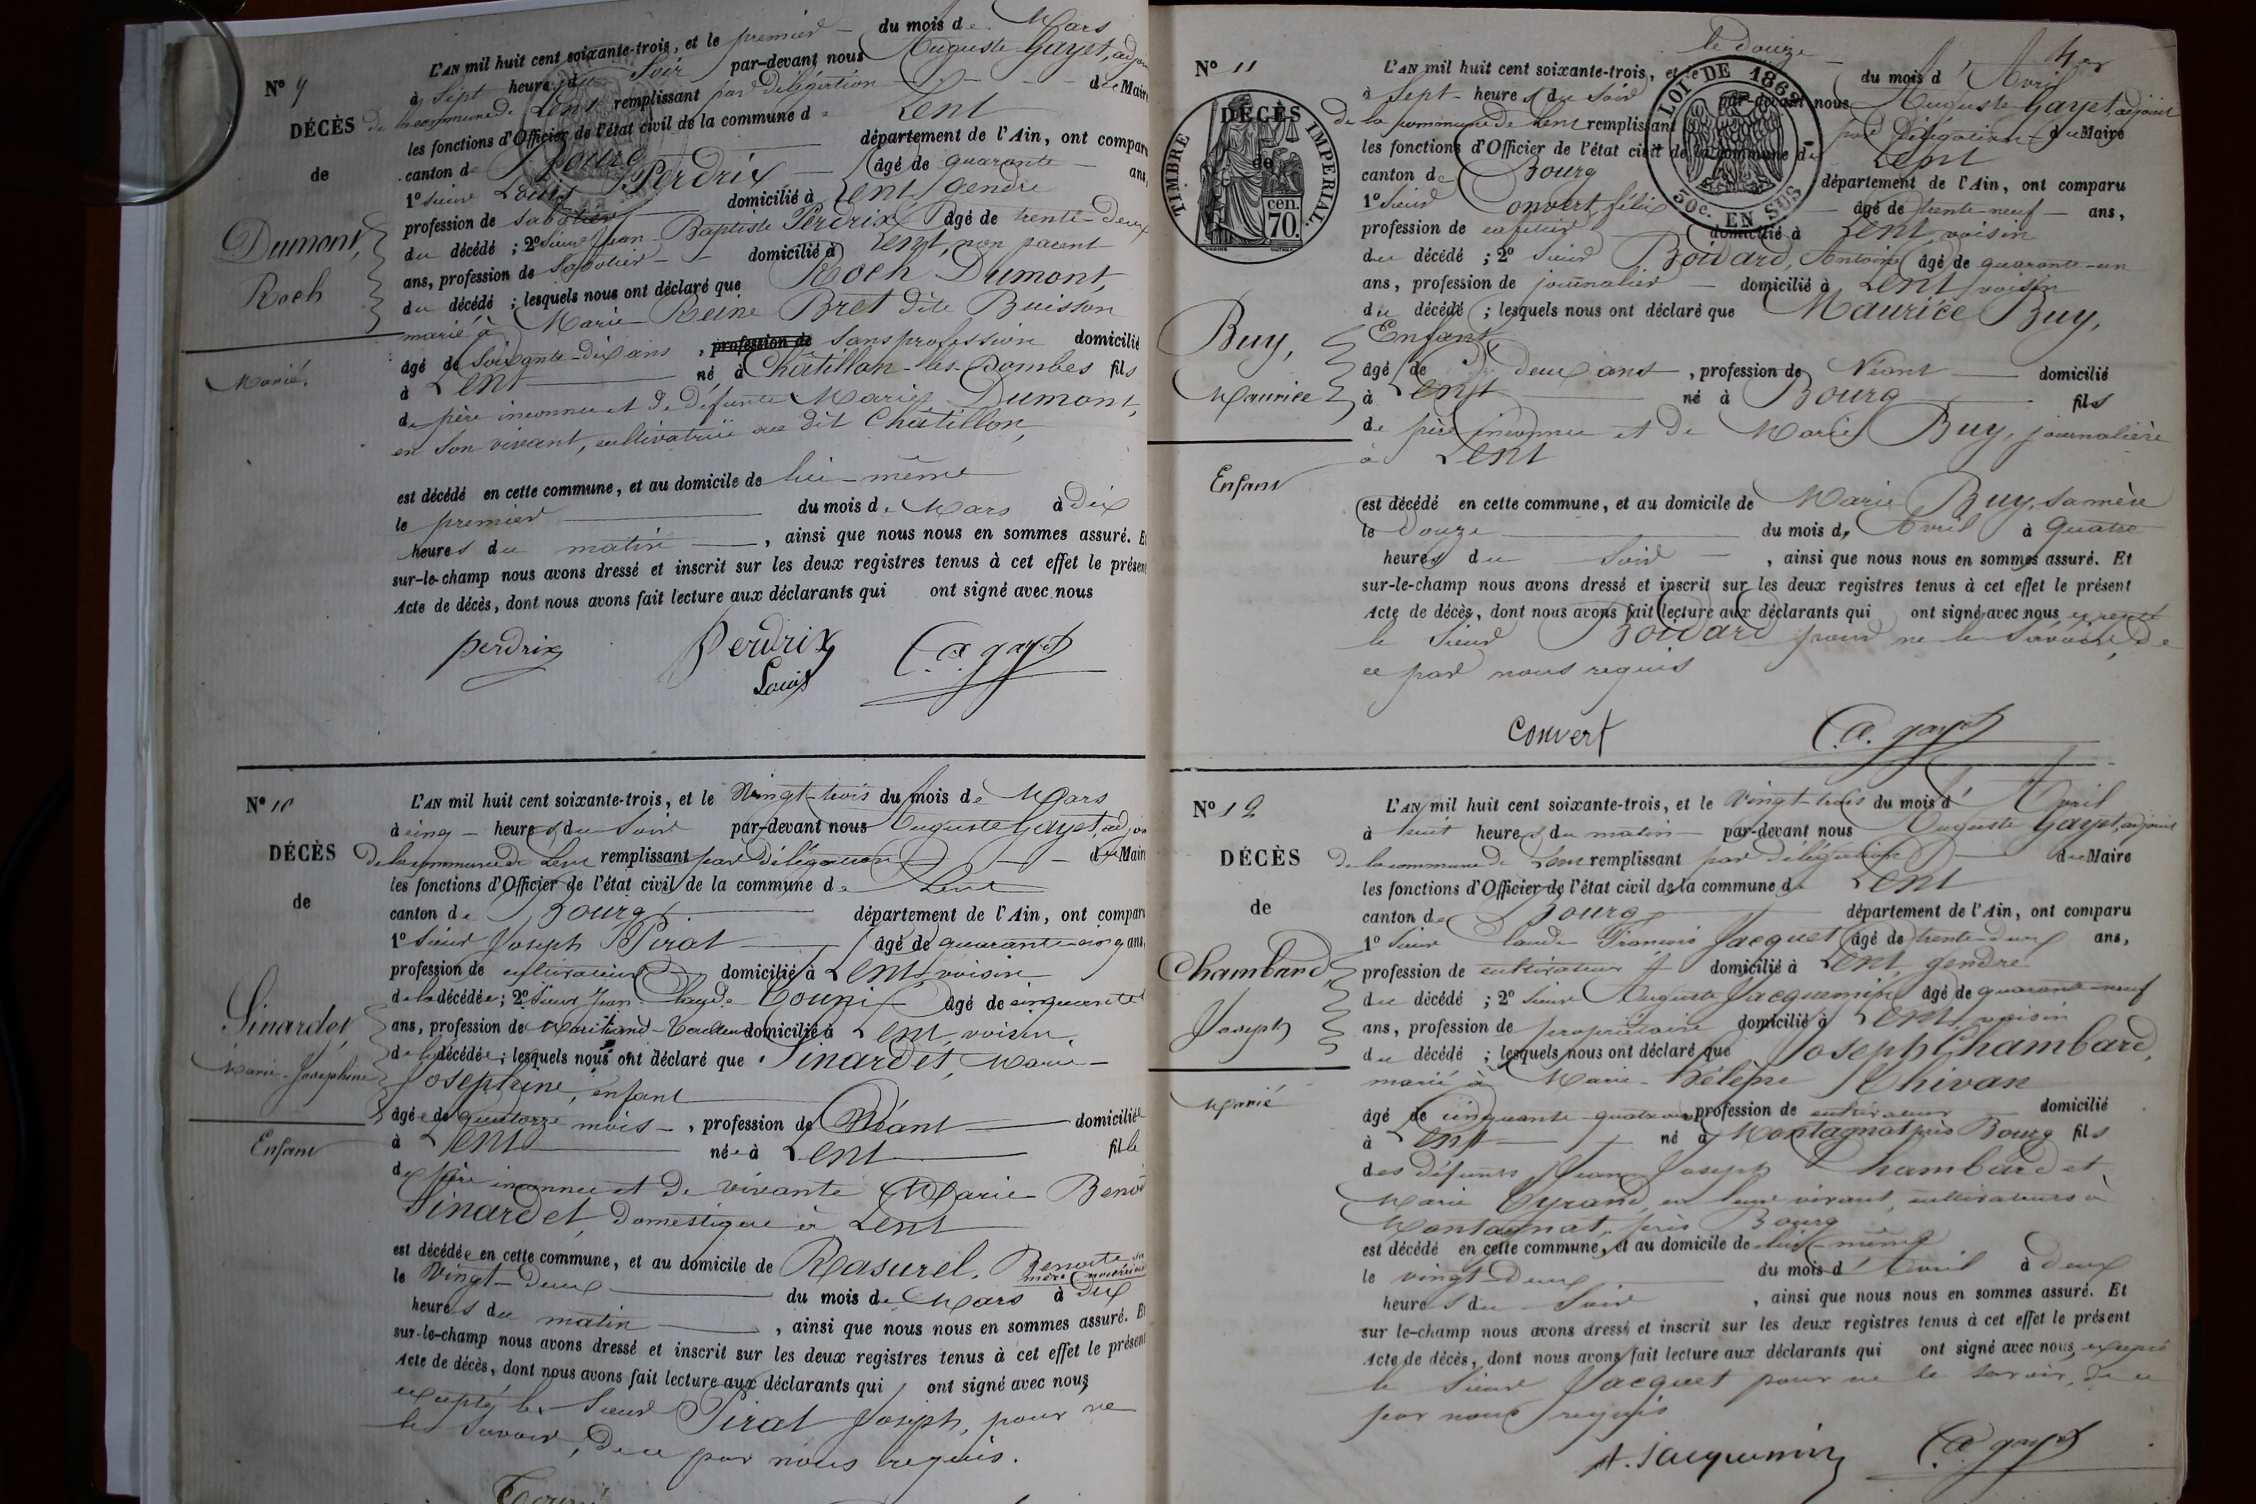 L'AN mil huit cent soixante-trois, et le premier du mois de Mars
à Sept heures du Soir par-devant nous Auguste Gayet, adjoint
Nº 9
DÉCÈS
de
Dumont,
Roch
Marié.
de la commune de Lent remplissant par délégation du Maire
les fonctions d'Officier de l'état civil de la commune de Lent
canton de Bourg département de l'Ain, ont comparu
1º Sieur Louis Perdrix âgé de quarante ans,
profession de sabotier domicilié à Lent, gendre
du décédé ; 2º Sieur Jean-Baptiste Perdrix âgé de trente-deux
ans, profession de Sabotier domicilié à Lent, non parent
du décédé ; lesquels nous ont déclaré que Roch Dumont,
marié à Marie Reine Bret dite Buisson
âgé de Soixante-dix ans, profession de sans profession domicilié
à Lent né à Châtillon-les-Dombes fils
de père inconnu et de défunte Marie Dumont,
en son vivant, cultivatrice au dit Châtillon,
est décédé en cette commune, et au domicile de lui-même
le premier du mois de Mars à dix
heures du matin, ainsi que nous nous en sommes assuré. Et
sur-le-champ nous avons dressé et inscrit sur les deux registres tenus à cet effet le présent
Acte de décès, dont nous avons fait lecture aux déclarants qui ont signé avec nous
perdrix Perdrix C.A. gayet
Louis
Nº 10
DÉCÈS
de
Sinardet,
Marie-Josephine
Enfant
L'AN mil huit cent soixante-trois, et le Vingt-trois du mois de Mars
à cinq heures du Soir par-devant nous Auguste Gayet, adjoint
de la commune de Lent remplissant par délégation du Maire
les fonctions d'Officier de l'état civil de la commune de Lent
canton de Bourg département de l'Ain, ont comparu
1º Sieur Joseph Pirat âgé de quarante-cinq ans,
profession de cultivateur domicilié à Lent, voisin
de la décédée ; 2º Sieur Jean Claude âgé de cinquante
ans, profession de Marchand domicilié à Lent, voisin,
de la décédée ; lesquels nous ont déclaré que Sinardet, Marie-
Josephine, enfant
âgée de quatorze mois, profession de Néant domiciliée
à Lent née à Lent fille
de père inconnu et de vivante Marie Benoite
Sinardet, domestique à Lent
est décédée en cette commune, et au domicile de Rasurel, Benoite sa
mère nourricière
le Vingt-deux du mois de Mars à dix
heures du matin, ainsi que nous nous en sommes assuré. Et
sur-le-champ nous avons dressé et inscrit sur les deux registres tenus à cet effet le présent
Acte de décès, dont nous avons fait lecture aux déclarants qui ont signé avec nous,
excepté le Sieur Pirat Joseph, pour ne
le savoir, de ce par nous requis.
Nº 11
TIMBRE IMPERIAL
70 cen.
LOI DE 1862
30c. EN SUS
DÉCÈS
de
Buy,
Maurice
Enfant
le douze
L'AN mil huit cent soixante-trois, et le du mois d'Avril
à Sept heures du Soir par-devant nous Auguste Gayet, adjoint
de la commune de Lent remplissant par délégation du Maire
les fonctions d'Officier de l'état civil de la commune de Lent
canton de Bourg département de l'Ain, ont comparu
1º Sieur Convert, félix âgé de trente-neuf ans,
profession de cafetier domicilié à Lent, voisin
du décédé ; 2º Sieur Boidard, Antoine âgé de quarante-un
ans, profession de journalier domicilié à Lent, voisin
du décédé ; lesquels nous ont déclaré que Maurice Buy,
Enfant
âgé de deux ans, profession de Néant domicilié
à Lent né à Bourg fils
de père inconnu et de Marie Buy, journalière
à Lent
est décédé en cette commune, et au domicile de Marie Buy, sa mère
le Douze du mois d'Avril à quatre
heures du Soir, ainsi que nous nous en sommes assuré. Et
sur-le-champ nous avons dressé et inscrit sur les deux registres tenus à cet effet le présent
Acte de décès, dont nous avons fait lecture aux déclarants qui ont signé avec nous excepté
le Sieur Boidard pour ne le savoir, de
ce par nous requis
convert C.A. gayet
Nº 12
DÉCÈS
de
Chambard,
Joseph
Marié
L'AN mil huit cent soixante-trois, et le Vingt-trois du mois d'Avril
à huit heures du matin par-devant nous Auguste Gayet, adjoint
de la commune de Lent remplissant par délégation du Maire
les fonctions d'Officier de l'état civil de la commune de Lent
canton de Bourg département de l'Ain, ont comparu
1º Sieur Claude François Jacquet âgé de trente-deux ans,
profession de cultivateur domicilié à Lent, gendre
du décédé ; 2º Sieur Auguste Jacquemin âgé de quarante-neuf
ans, profession de propriétaire domicilié à Lent, voisin
du décédé ; lesquels nous ont déclaré que Joseph Chambard,
marié à Marie-Hélène Chivan
âgé de cinquante-quatre ans, profession de cultivateur domicilié
à Lent né à Montagnat près Bourg fils
des défunts Jean Joseph Chambard et
Marie Cyrand, en leur vivant, cultivateurs à
Montagnat, près Bourg
est décédé en cette commune, et au domicile de lui-même
le vingt-deux du mois d'Avril à deux
heures du Soir, ainsi que nous nous en sommes assuré. Et
sur le-champ nous avons dressé et inscrit sur les deux registres tenus à cet effet le présent
Acte de décès, dont nous avons fait lecture aux déclarants qui ont signé avec nous, excepté
le Sieur Jacquet pour ne le savoir, de ce
par nous requis
A. Jacquemin C.A. gayet